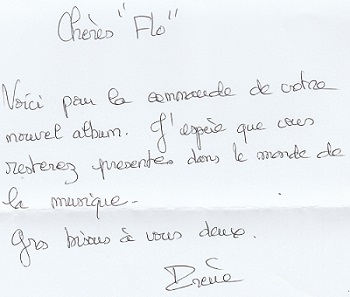 Chères "Flo"
Voici pour la commande de votre
nouvel album. J'espère que vous
resterez presentes dans le monde de
la musique.
Gros bisous à vous deux.
Irène